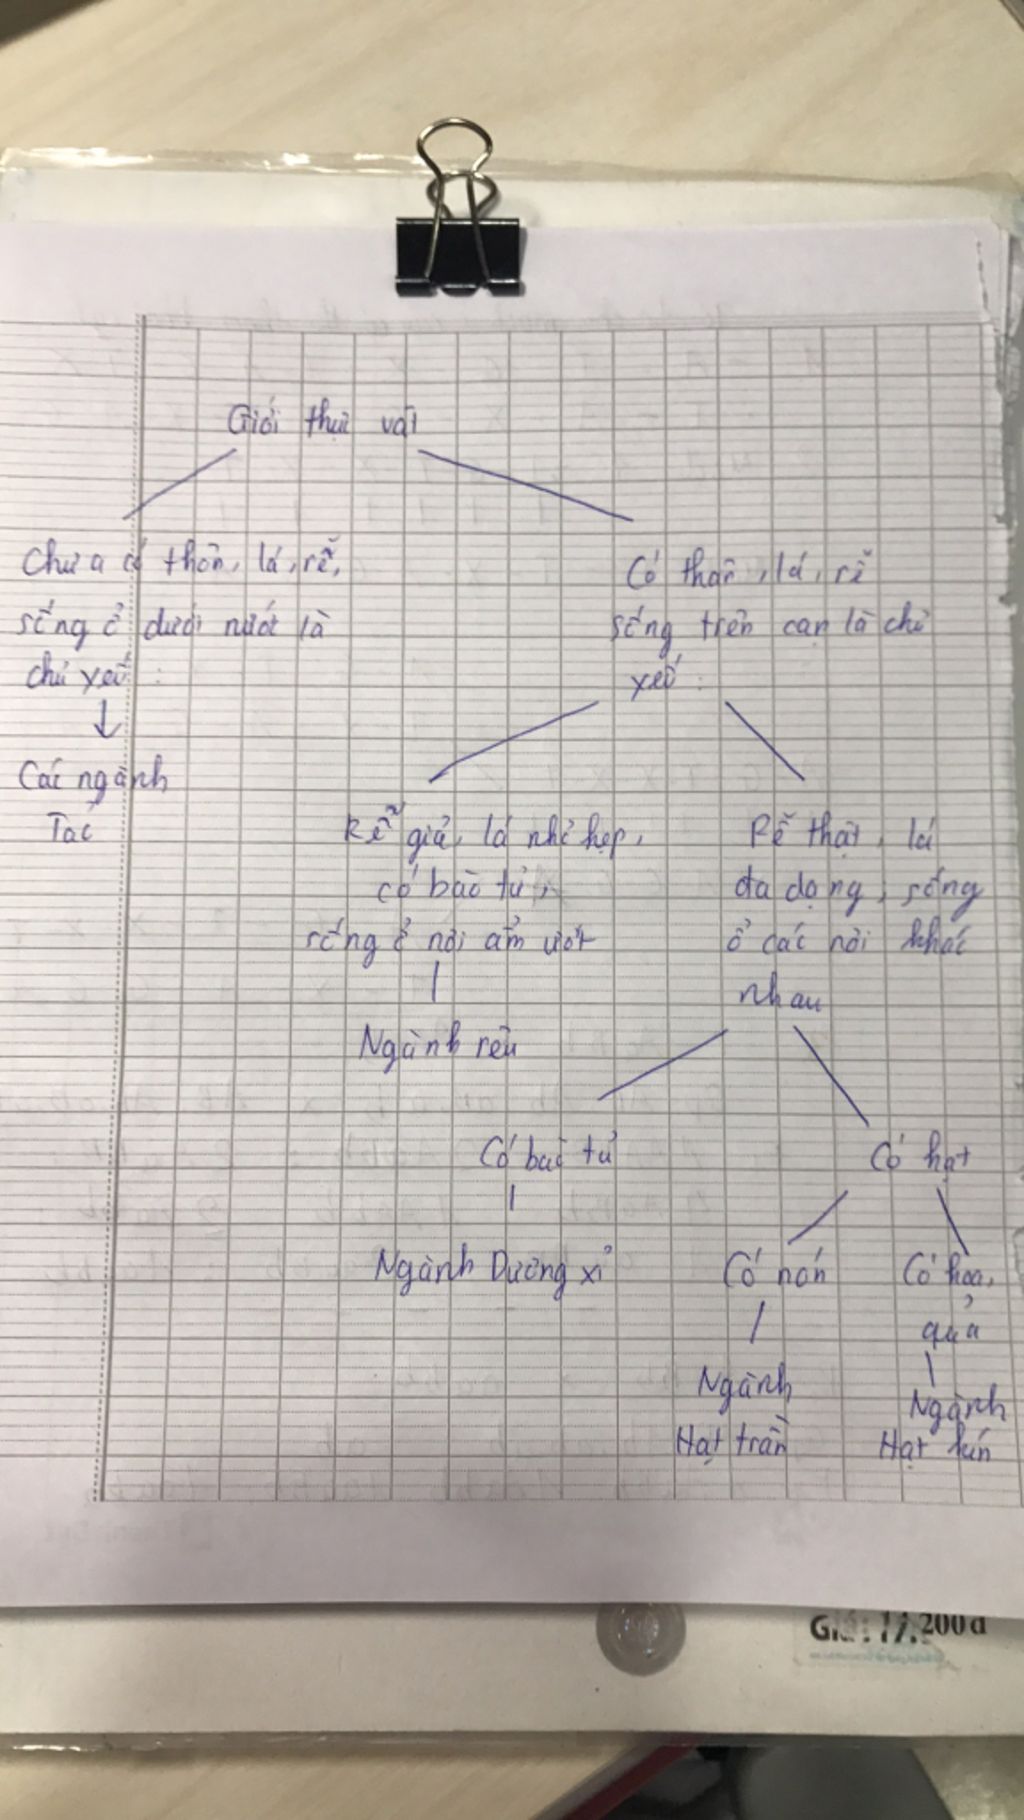 Giới thực vật
Chưa có thân, lá, rễ,
sống ở dưới nước là
chủ yếu :
Các ngành
Tảo
Có thân, lá, rễ
sống trên cạn là chủ
yếu :
Rễ giả, lá nhỏ hẹp,
có bào tử,
sống ở nơi ẩm ướt
Ngành rêu
Rễ thật, lá
đa dạng, sống
ở các nơi khác
nhau
Có bào tử
Ngành Dương xỉ
Có hạt
Có nón
Ngành
Hạt trần
Có hoa,
quả
Ngành
Hạt kín
200đ